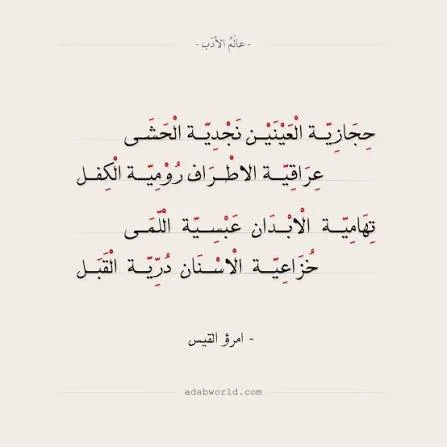 - عالَمُ الأدَب -
حِجَازِيّـة الْعَيْنَيْـن نَجْدِيّـة الْحَشَـى
عِرَاقِيّـة الاطْـرَاف رُوْمِيّـة الْكِفـل
تِهَامِيّـة الْابْـدَان عَبْسِـيّة الْلَمَـى
خُزَاعِيّـة الْاسْـنَان دُرِيّـة القَبَـل
- امرؤ القيس
adabworld.com